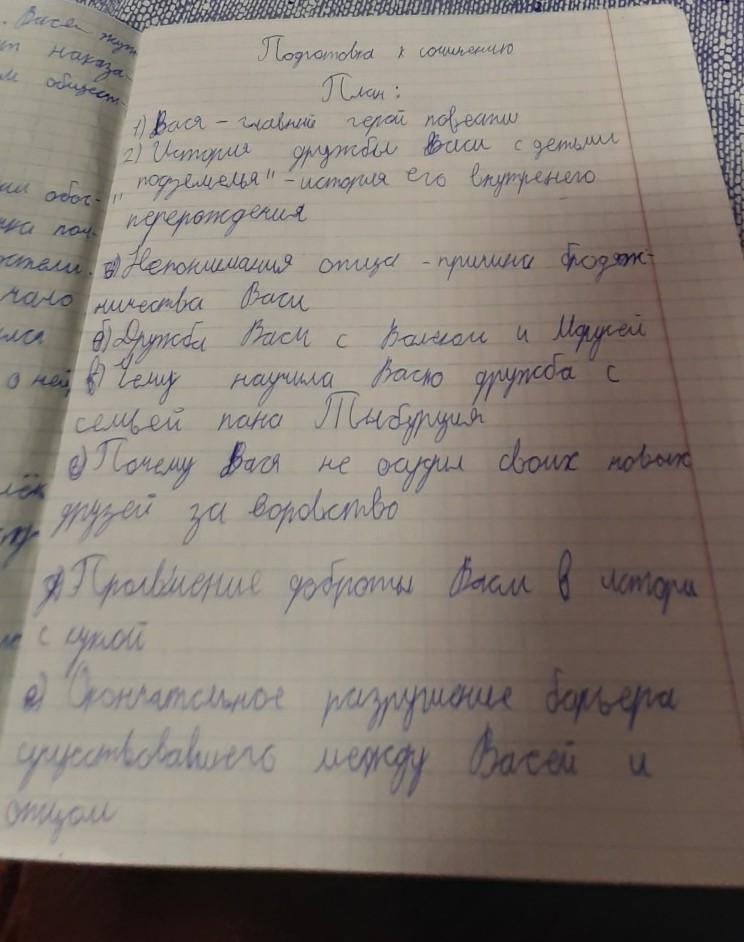 . Васей жут
т наказа-
м общест-
Подготовка к сочинению
План:
1) Вася - главний герой повести
2) История дружбы Васи с детьми
"подземелья" - история его внутренего
перерождения
а) Непонимания отца - причина бродяж-
ничества Васи
б) Дружба Васи с Валеком и Марусей
в) Чему научила Васю дружба с
семьей пана Тыбурция
г) Почему Вася не осудил своих новых
друзей за воровство
д) Проявление доброты Васи в истори
с куклой
е) Окончательное разрушение барьера
существовавшего между Васей и
отцом